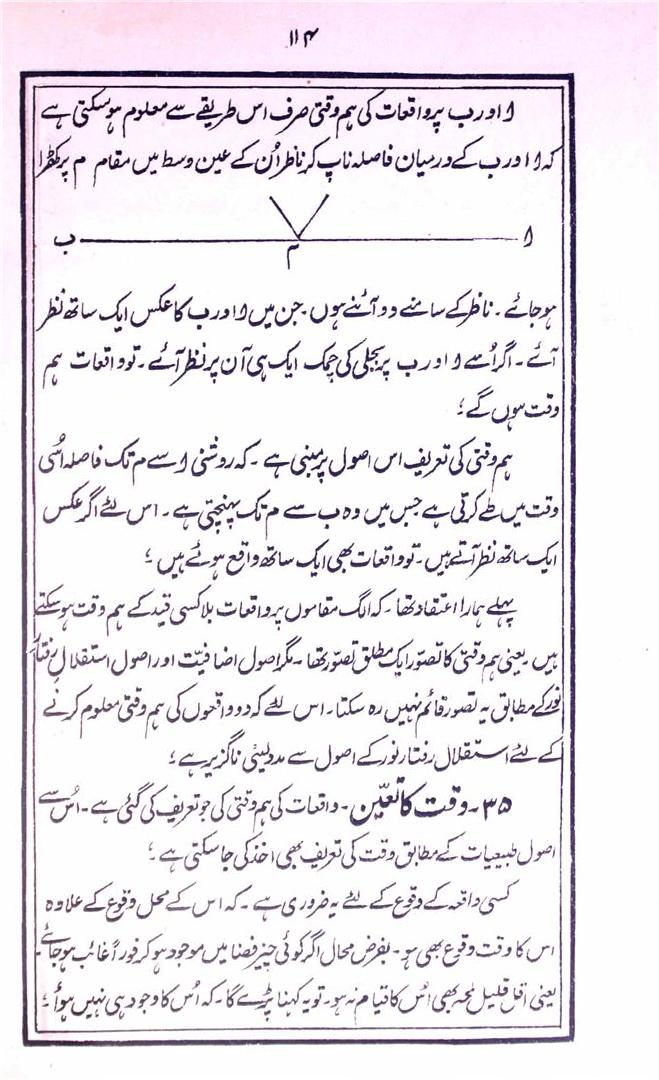 ۱۱۴
ا اور ب پر واقعات کی ہم وقتی صرف اس طریقے سے معلوم ہو سکتی ہے
کہ ا اور ب کے درمیان فاصلہ ناپ کر ناظر اُن کے عین وسط میں مقام م پر کھڑا
ا ب
م
ہو جائے۔ ناظر کے سامنے دو آئنے ہوں۔ جن میں ا اور ب کا عکس ایک ساتھ نظر
آئے۔ اگر اُسے ا اور ب پر بجلی کی چمک ایک ہی آن پر نظر آئے۔ تو واقعات ہم
وقت ہوں گے؛
ہم وقتی کی تعریف اس اصول پر مبنی ہے۔ کہ روشنی ا سے م تک فاصلہ اُسی
وقت میں طے کرتی ہے جس میں وہ ب سے م تک پہنچتی ہے۔ اس لئے اگر عکس
ایک ساتھ نظر آتے ہیں۔ تو واقعات بھی ایک ساتھ واقع ہوئے ہیں؛
پہلے ہمارا اعتقاد تھا۔ کہ الگ مقاموں پر واقعات بلا کسی قید کے ہم وقت ہو سکتے
ہیں یعنی ہم وقتی کا تصوّر ایک مطلق تصوّر تھا۔ مگر اصول اضافیّت اور اصول استقلالِ رفتارِ
نور کے مطابق یہ تصور قائم نہیں رہ سکتا۔ اس لئے کہ دو واقعوں کی ہم وقتی معلوم کرنے
کے لئے استقلال رفتار نور کے اصول سے مدد لینی ناگزیر ہے؛
۳۵۔ وقت کا تعیّن۔ واقعات کی ہم وقتی کی جو تعریف کی گئی ہے۔ اُس سے
اصول طبیعیات کے مطابق وقت کی تعریف بھی اخذ کی جا سکتی ہے؛
کسی واقعہ کے وقوع کے لئے یہ ضروری ہے۔ کہ اس کے محل وقوع کے علاوہ
اس کا وقت وقوع بھی ہو۔ بفرض محال اگر کوئی چیز فضا میں موجود ہو کر فوراً غائب ہو جائے۔
یعنی اقل قلیل لمحہ بھی اُس کا قیام نہ ہو۔ تو یہ کہنا پڑے گا۔ کہ اُس کا وجود ہی نہیں ہوا؛